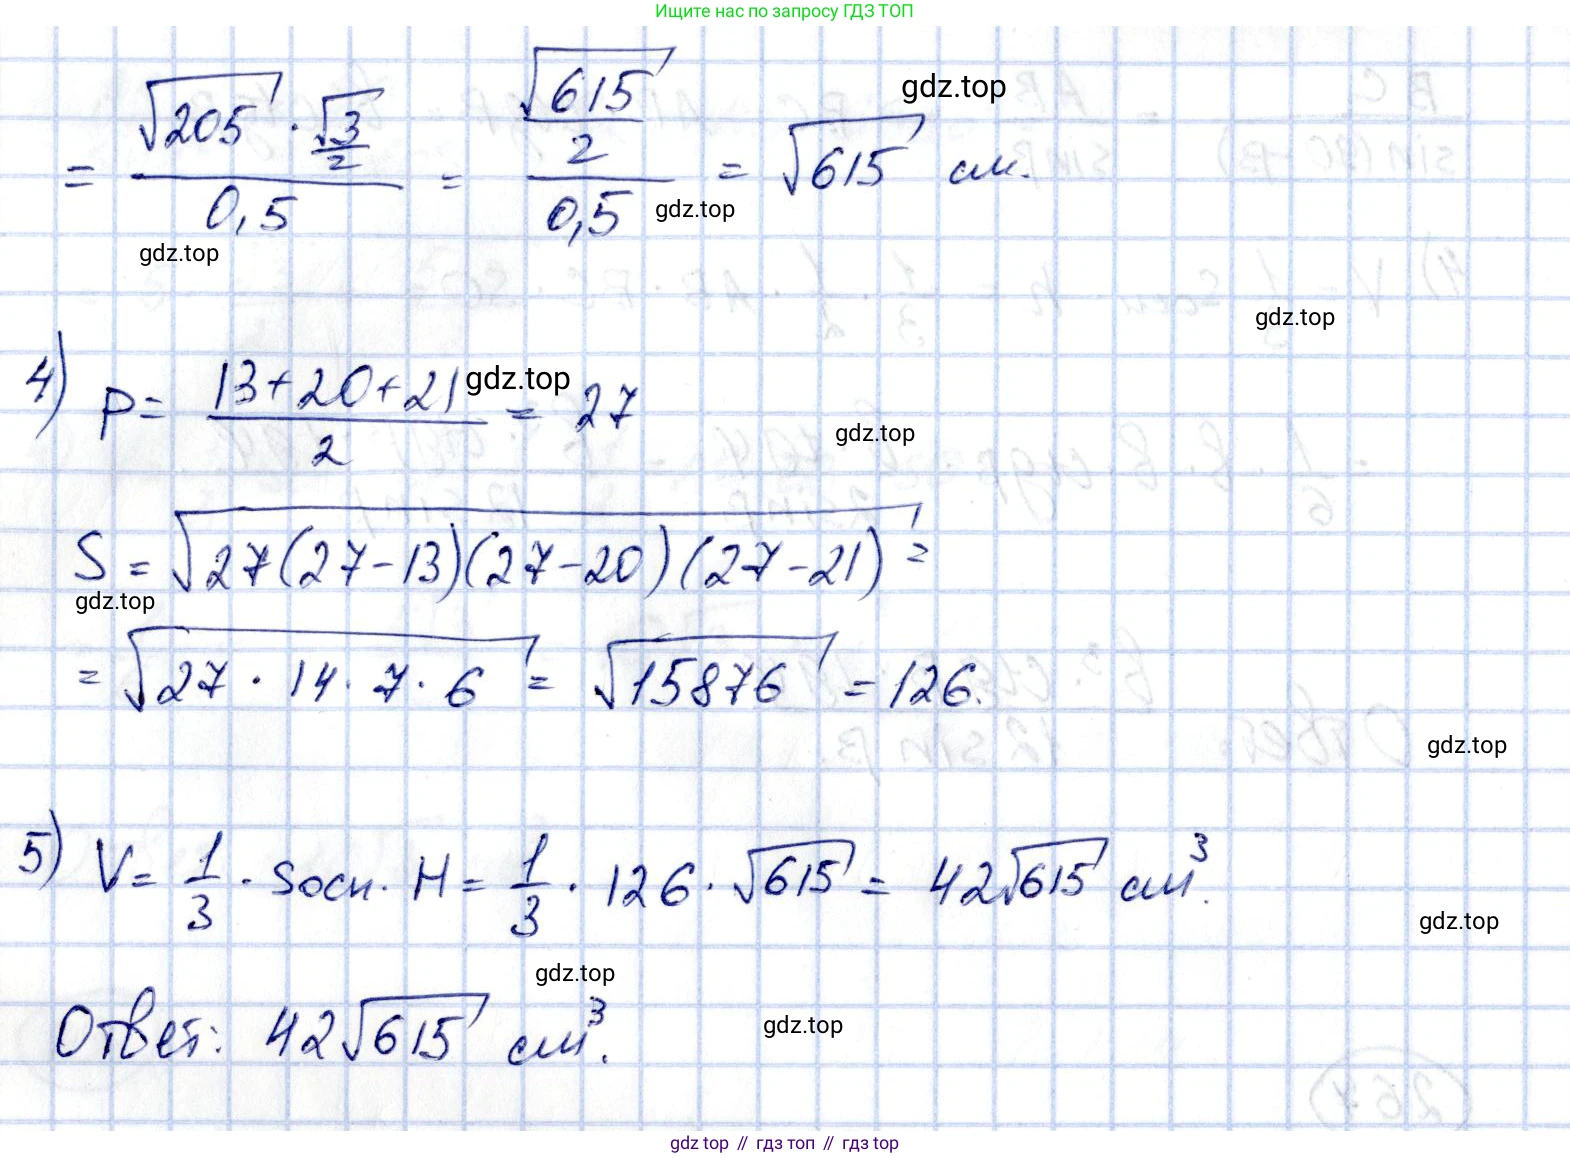 Ищите нас по запросу ГДЗ ТОП
= (√205 · √3/2) / 0,5 = (√615/2) / 0,5 = √615 см.
gdz.top
gdz.top
gdz.top
gdz.top
4) p = (13+20+21) / 2 = 27
gdz.top
gdz.top
S = √27(27-13)(27-20)(27-21) =
gdz.top
= √27 · 14 · 7 · 6 = √15876 = 126.
gdz.top
5) V = 1/3 · Sосн · H = 1/3 · 126 · √615 = 42√615 см³.
gdz.top
gdz.top
Ответ: 42√615 см³.
gdz.top
gdz top // гдз топ // гдз top